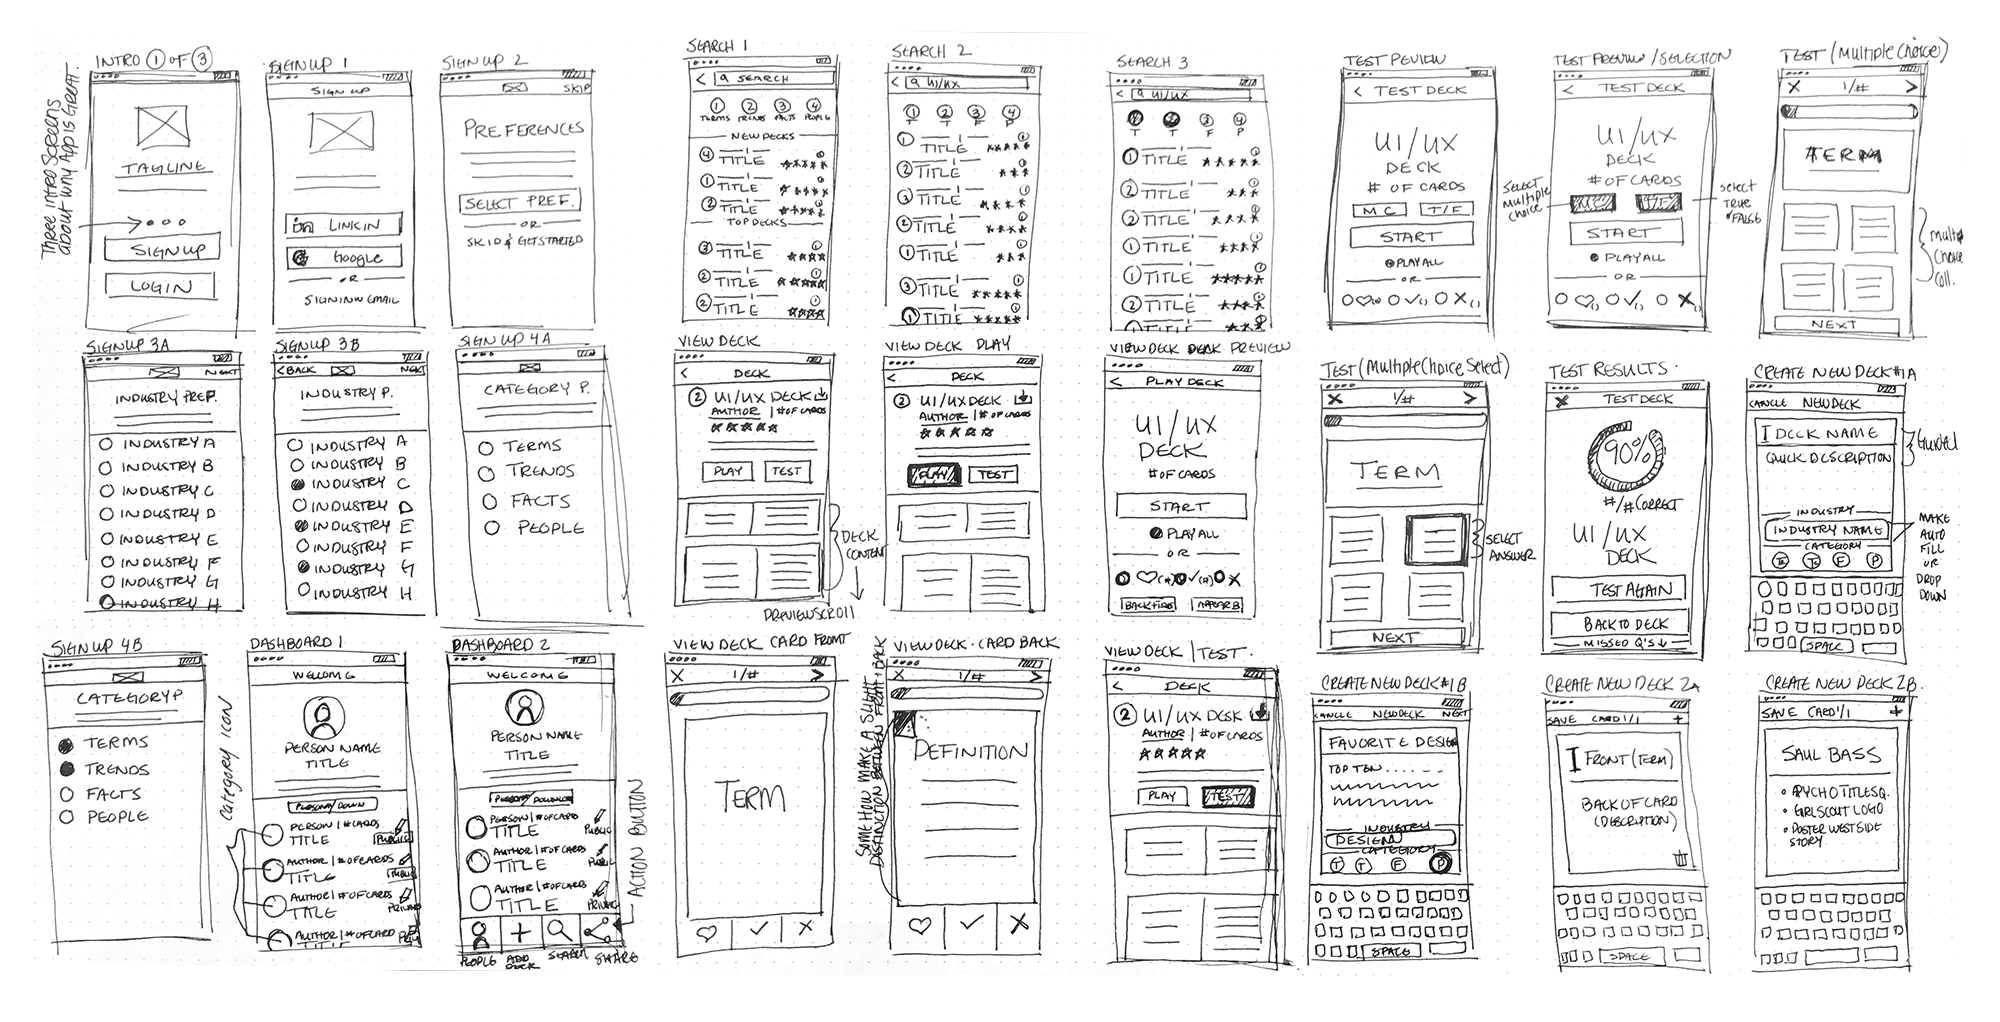 INTRO 1 OF 3
THREE INTRO SCREENS
ABOUT WHY APP IS GREAT.
TAGLINE
SIGNUP
LOGIN
SIGNUP 1
SIGN UP
in LINKIN
G Google
OR
SIGNIN W EMAIL
SIGNUP 2
SKIP
PREFERENCES
SELECT PREF.
OR
SKIP & GET STARTED
SEARCH 1
< SEARCH
1 2 3 4
TERMS TRENDS FACTS PEOPLE
NEW DECKS
4 TITLE
1 TITLE
2 TITLE
TOP DECKS
3 TITLE
2 TITLE
2 TITLE
SEARCH 2
< UI/UX
1 2 3 4
T T F P
1 TITLE
2 TITLE
3 TITLE
2 TITLE
1 TITLE
3 TITLE
1 TITLE
SEARCH 3
< UI/UX
3 4
T T F P
1 TITLE
2 TITLE
2 TITLE
1 TITLE
1 TITLE
2 TITLE
1 TITLE
TEST PEVIEW
< TEST DECK
UI/UX
DECK
# OF CARDS
MC T/F
START
PLAY ALL
OR
TEST PREVIEW/SELECTION
< TEST DECK
UI/UX
DECK
# OF CARDS
SELECT
MULTIPLE
CHOICE
MC T/F
SELECT
TRUE
FALSE
START
PLAY ALL
OR
TEST (MULTIPLE CHOICE)
X 1/# >
TERM
MULTI
CHOICE
NEXT
SIGNUP 3A
NEXT
INDUSTRY PREF.
INDUSTRY A
INDUSTRY B
INDUSTRY C
INDUSTRY D
INDUSTRY E
INDUSTRY F
INDUSTRY G
INDUSTRY H
SIGNUP 3B
<BACK NEXT
INDUSTRY P.
INDUSTRY A
INDUSTRY B
INDUSTRY C
INDUSTRY D
INDUSTRY E
INDUSTRY F
INDUSTRY G
INDUSTRY H
SIGNUP 4A
CATEGORY P.
TERMS
TRENDS
FACTS
PEOPLE
VIEW DECK
< DECK
2 UI/UX DECK
AUTHOR | # OF CARDS
PLAY TEST
DECK
CONTENT
PREVIEW SCROLL
VIEW DECK PLAY
< DECK
2 UI/UX DECK
AUTHOR | # OF CARDS
PLAY TEST
VIEW DECK DECK PREVIEW
< PLAY DECK
UI/UX
DECK
# OF CARDS
START
PLAY ALL
OR
TEST (MULTIPLE CHOICE SELECT)
X 1/# >
TERM
SELECT
ANSWER
NEXT
TEST RESULTS.
X TEST DECK
90%
#/# CORRECT
UI/UX
DECK
TEST AGAIN
BACK TO DECK
MISSED Q'S
CREATE NEW DECK #1A
CANCLE NEW DECK
DECK NAME
QUICK DESCRIPTION
INDUSTRY
INDUSTRY NAME
CATEGORY
F P
MAKE
AUTO
FILL
OR
DROP
DOWN
SPACE
SIGNUP 4B
CATEGORY P
TERMS
TRENDS
FACTS
PEOPLE
CATEGORY ICON
DASHBOARD 1
WELCOME
PERSON NAME
TITLE
PERSON/DOWN
PERSON | # CARDS
TITLE
PUBLIC
AUTHOR | # OF CARDS
TITLE
PUBLIC
AUTHOR | # OF CARDS
TITLE
AUTHOR | # OF CARD
TITLE
DASHBOARD 2
WELCOME
PERSON NAME
TITLE
PERSON/DOWNLOA
PERSON | # OF CARD
TITLE
PUBLIC
AUTHOR | # OF CARDS
TITLE
AUTHOR | # OF CARDS
TITLE
ACTION BUTTON
PEOPLE ADD DECK SEARCH SHARE
VIEW DECK CARD FRONT
X 1/# >
TERM
SOME HOW MAKE A SLIGHT
DISTINCTION BETWEEN FRONT & BACK
VIEW DECK. CARD BACK
X 1/# >
DEFINITION
VIEW DECK | TEST.
< DECK
2 UI/UX DESK
AUTHOR | # OF CARDS
PLAY TEST
CREATE NEW DECK #1B
CANCLE NEW DECK NEXT
FAVORITE DESIGN
TOP TEN
INDUSTRY
DESIGN
CATEGORY
T T F P
SPACE
CREATE NEW DECK 2A
SAVE CARD 1/1 +
FRONT (TERM)
BACK OF CARD
(DESCRIPTION)
SPACE
CREATE NEW DECK 2B
SAVE CARD 1/1 +
SAUL BASS
• PYCHO TITLE SQ.
• GIRLSCOUT LOGO
• POSTER WESTSIDE
STORY
SPACE